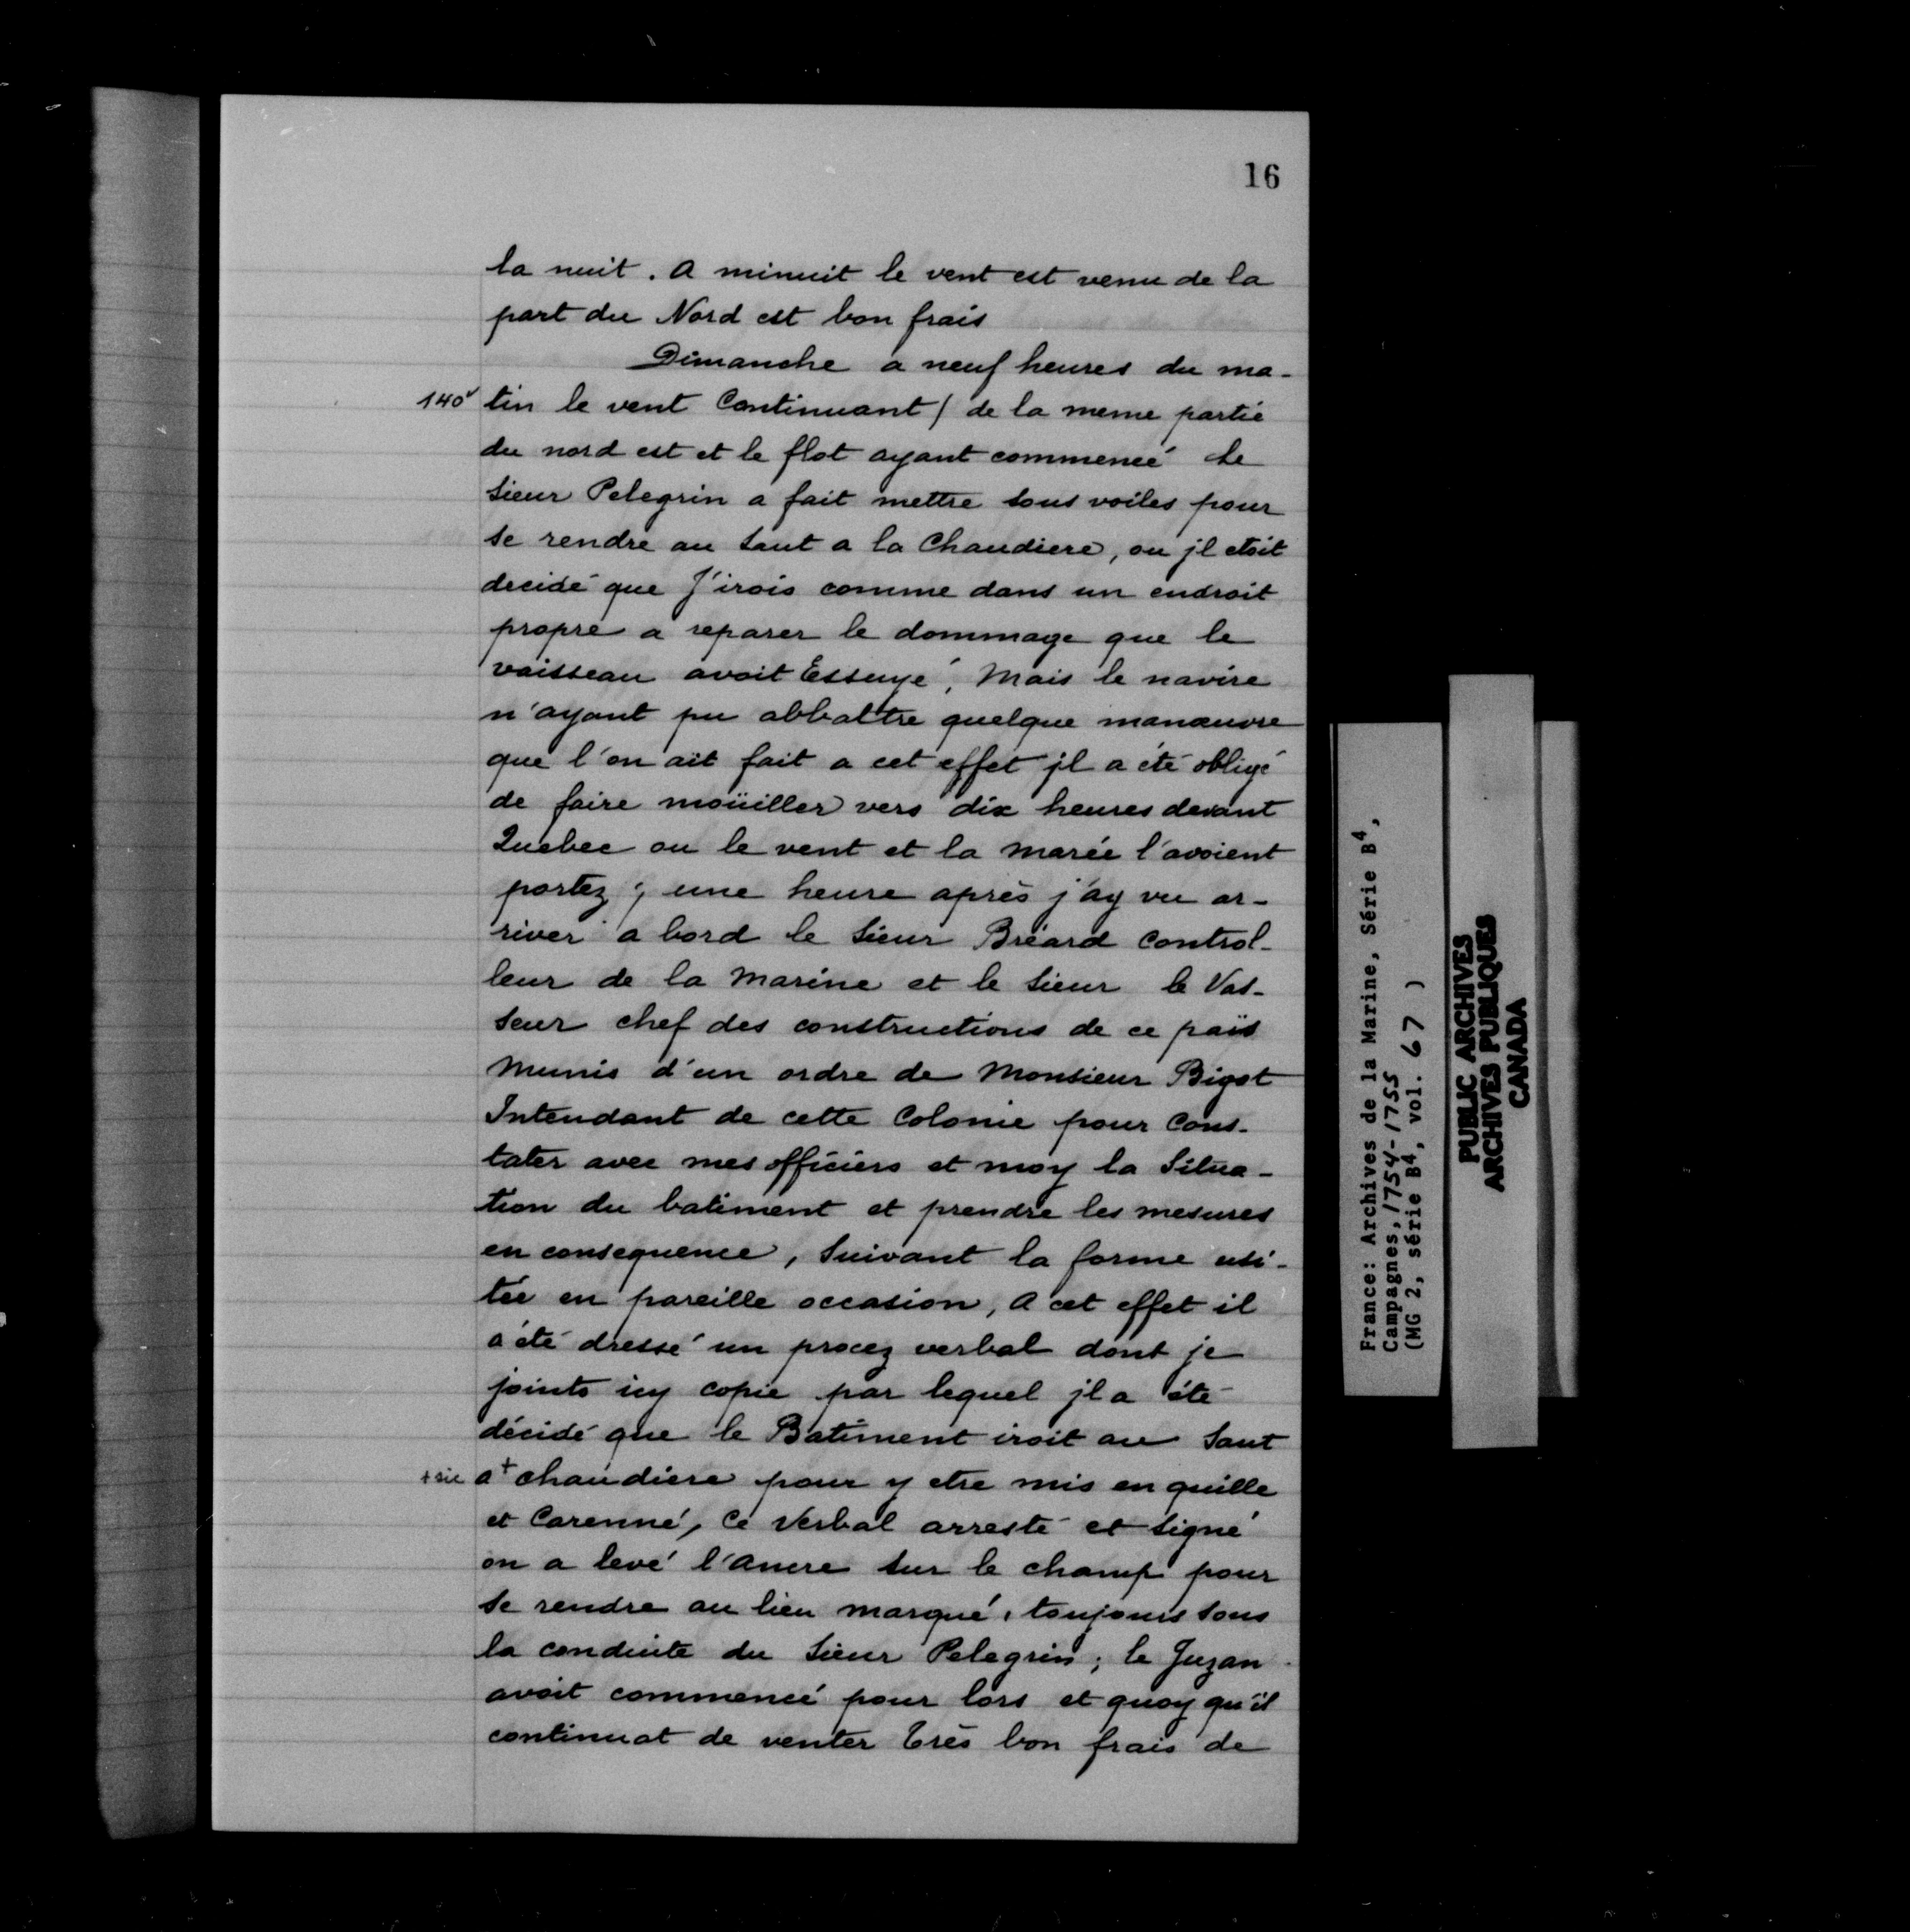 16
la nuit. A minuit le vent est venu de la
part du Nord est bon frais
Dimanche a neuf heures du ma-
140v tin le vent Continuant / de la meme partie
du nord est et le flot ayant commencé le
Sieur Pelegrin a fait mettre sous voiles pour
se rendre au Saut a la Chaudiere, ou jl etoit
decidé que J'irois comme dans un endroit
propre a reparer le dommage que le
vaisseau avoit Essuyé, Mais le navire
n'ayant pu abbattre quelque manœuvre
que l'on ait fait a cet effet jl a été obligé
de faire moüiller vers dix heures devant
Quebec ou le vent et la marée l'avoient
portez; une heure après j'ay vu ar-
river a bord le Sieur Bréard Control-
leur de la Marine et le Sieur le Vas-
seur chef des constructions de ce païs
Munis d'un ordre de Monsieur Bigot
Intendant de cette Colonie pour Cons-
tater avec mes officiers et moy la Situa-
tion du batiment et prendre les mesures
en consequence, Suivant la forme usi-
tée en pareille occasion, A cet effet il
a été dressé un procez verbal dont je
joints icy copie par lequel jl a été
décidé que le Batiment iroit au Saut
+ sic a + chaudiere pour y etre mis en quille
et Carenné, Ce Verbal arresté et Signé
on a levé l'Ancre sur le champ pour
se rendre au lieu marqué, toujours sous
la conduite du Sieur Pelegrin; le Juzan
avoit commencé pour lors et quoy qu'il
continuat de venter très bon frais de
France: Archives de la Marine, Série B4,
Campagnes, 1754-1755
(MG 2, série B4, vol. 67 )
PUBLIC ARCHIVES
ARCHIVES PUBLIQUES
CANADA